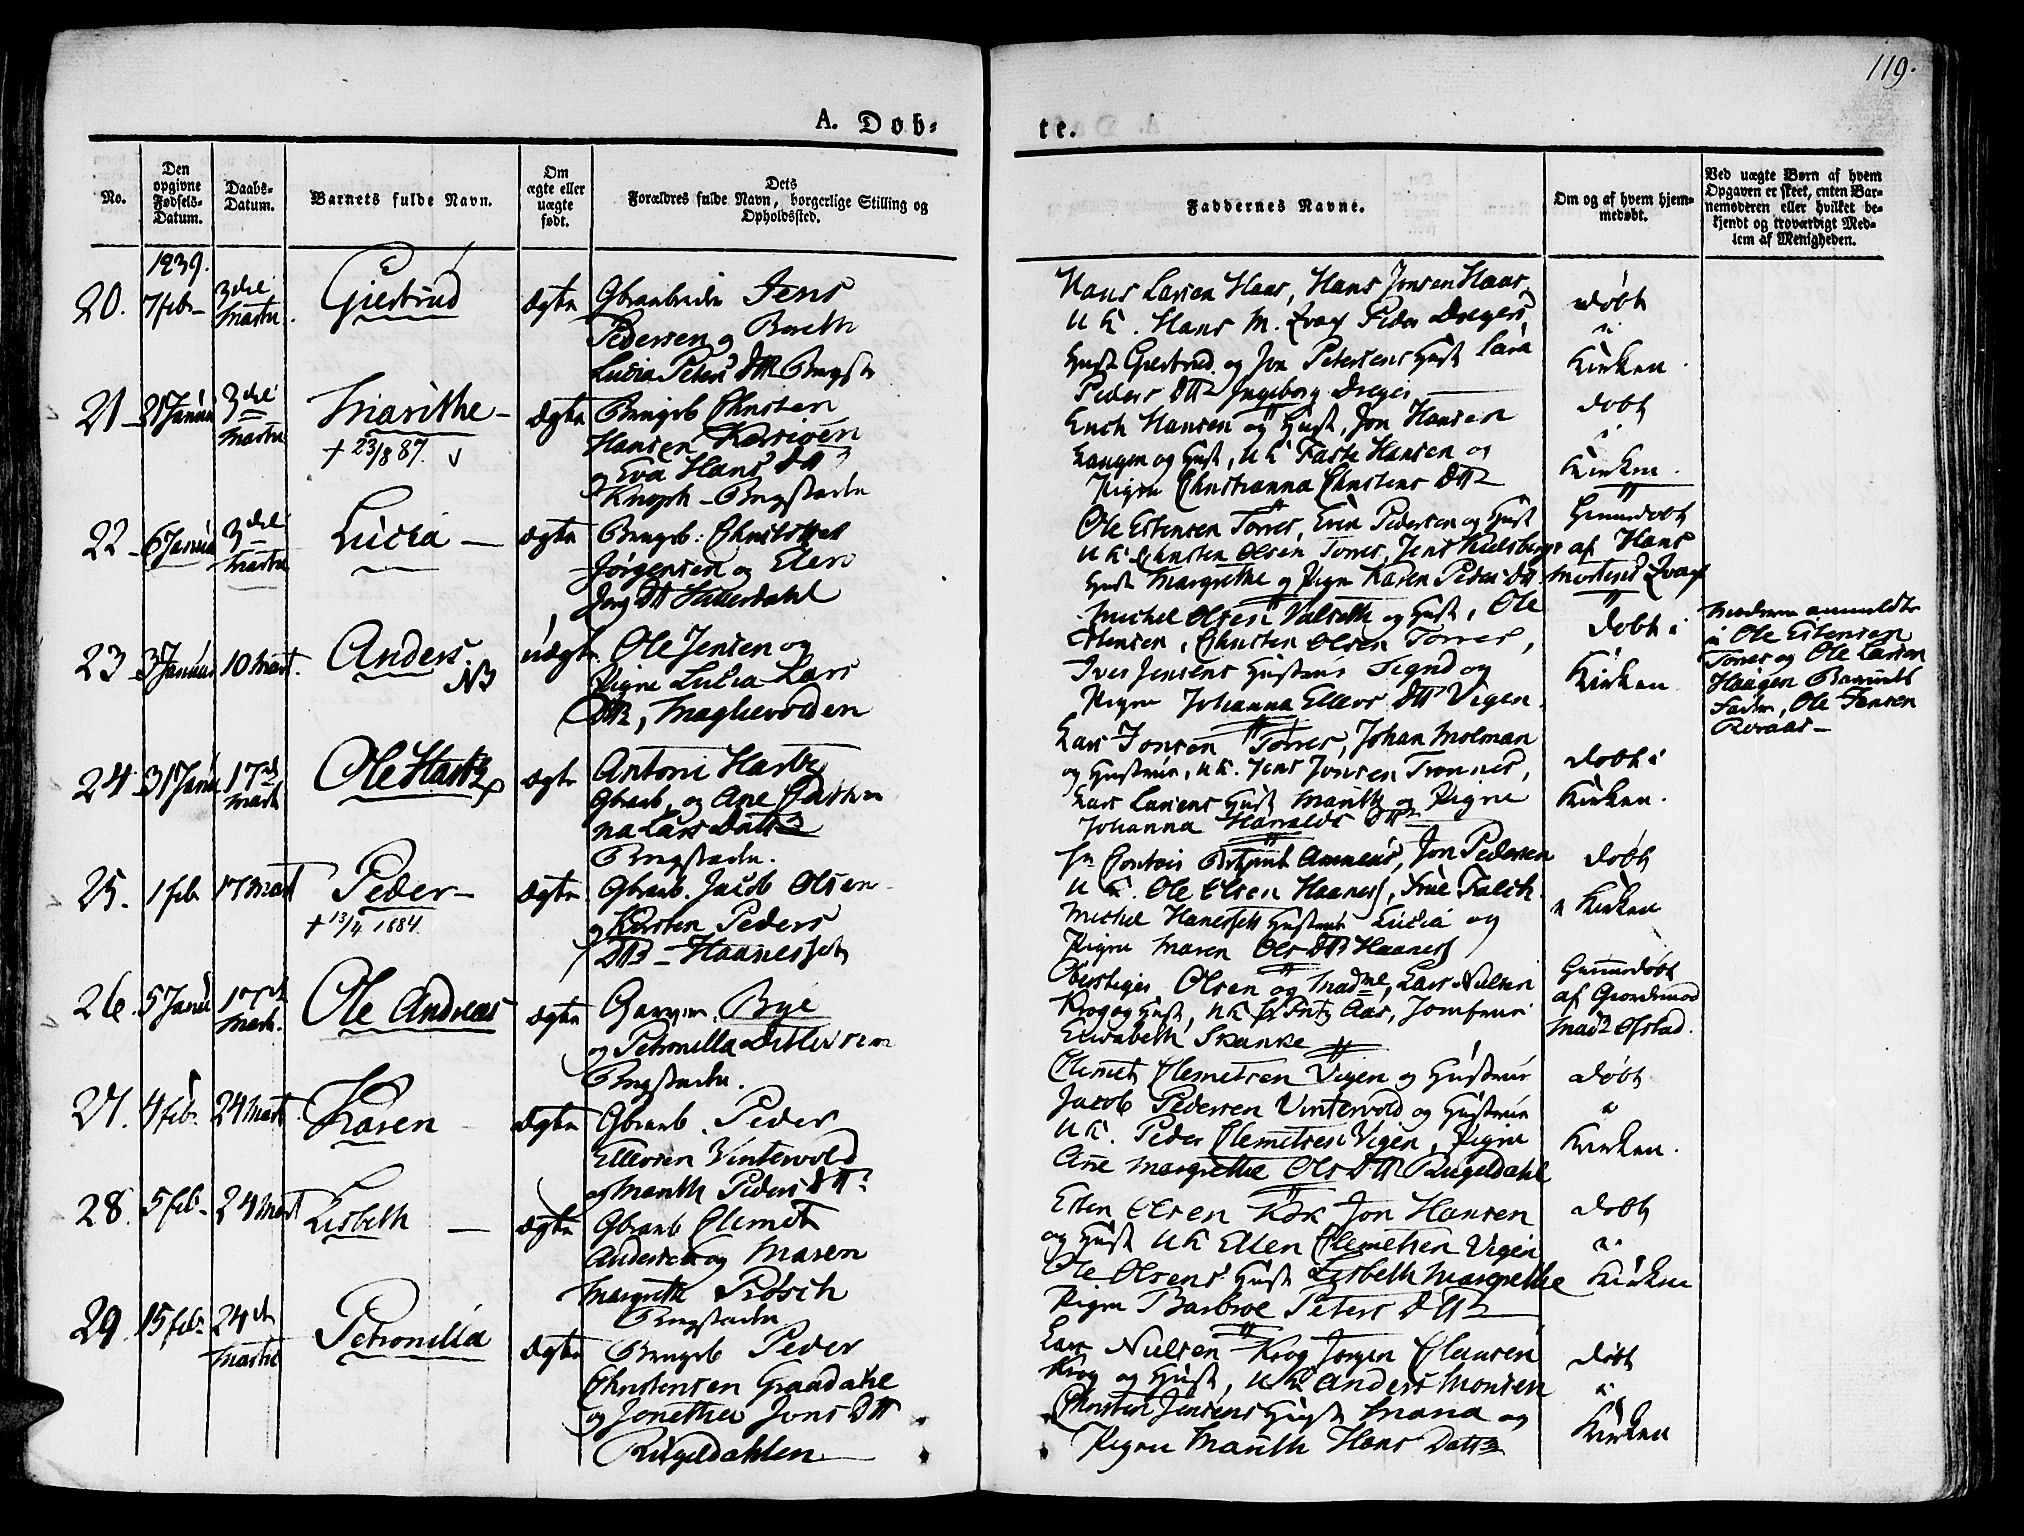 119.
A. Døb-
te.
No.
Den opgivne Fødsels-Datum.
Daabs-Datum.
Barnets fulde Navn.
Om ægte eller uægte født.
Dets Forældres fulde Navn, borgerlige Stilling og Opholdssted.
Faddernes Navne.
Om og af hvem hjemmedøbt.
Ved uægte Børn af hvem Opgaven er skeet, enten Barnemoderen eller hvilket bekjendt og troværdigt Medlem af Menigheden.
1839.
20. 7 feb- 3die Martii. Giertrud Ægte
Jens
Pedersen og Bereth
Lucia Peters Dtt
Hans Larsen Haas, Hans Jonsen Haas,
UK. Hans M. Peder Dreyers
Hust Giertrud og Jon Petersens Hust Sara
Peders Dtt Ingeborg Dreyer
døbt
i
Kirken.
21- 3die Martii Marithe - Ægte
+ 23/8 87.
Bergsb Christen
Hansen
og Eva Hans Dtt
Knoph - Bergstaden
Erich Hansen og Hust, Jon Hansen
Langen og Hust, UK Faste Hansen og
Pigen Christianna Christens Dtt
døbt
i
Kirken.
22- 6 Januar 3die Martii Lucia - Ægte
Bergsb: Christopher
Jørgensen og Elen
Jørg Dtt Hitterdahl
Ole Estensen Torres, Even Pedersen og Hust
UK Christen Olsen Torres, Jens
Hust Margrethe og Pigen Karen Peders Dtt
Hjemmedøbt
af Hans
Mortensen
23 3 Januar 10 Mart. Anders uægte
NB
Ole Jensen og
Pigen Lucia Lars
Dtt,
Michel Olsen Valseth og Hust, Ole
Estensen, Christen Olsen Torres,
Iver Jensens Hustrue Signd og
Pigen Johanna Ellevs Dtt Vigen.
Døbt i
Kirken
Moderen anmeldte
Ole Estensen
Torres og Ole Larsen
Haugen Barnets
Fader, Ole Jensen
Røraas-
24 31 Janu 17de Mart Ægte
Antoni
og Ane
na Lars Datter
Bergstaden.
Lars Jonsen Torres, Johan Molman
og Hustrue, UK. Jens Jonsen Tronnes,
Lars Larsens Hust Marith og Pigen
Johanna Haralds Dtt
døbt i
Kirken.
25. 1 feb 17 Mart Peder- Ægte
+ 13/4 1884.
Jacob Olsen
og Kirsten Peders
Dtt -
Jon Pedersen
UK. Ole Olsen Haanes, Frue Falch.
Michel Hustrue Lucia og
Pigen Maren Ols Dtt Haanes
døbt
i Kirken
26. 5 Janu 17de Mart. Ole Andreas Ægte
Bye
og Petronilla Ditlevsen
Bergstaden.
Oberstiger Olsen og Madme, Lars Nielsen
Krog og Hust, UK Hr Fritz Aas, Jomfrue
Elisabeth Skanke
Hjemmedøbt
af Giordemod
Mad Ofstad.
27. 4 feb 24 Mart Karen Ægte
Peder
Ellevsen Vintervold
og Marith Peders Dtt
Clemet Clemetsen Vigen og Hustrue
Jacob Pedersen Vintervold og Hustrue
UK. Peder Clemetsen Vigen, Pigen
Ane Margrethe Ols Dtt Rugeldahl
døbt
i
Kirken.
28. 5 feb- 24 Mart Lisbeth - Ægte
Clemet
Andersen og Maren
Margreth Prøsch
Bergstaden
Esten Olsen Jon Hansen
og Hust UK Ellen Clemetsen Vigen
Ole Olsens Hust Lisbeth Margrethe
Pigen Barbroe Peters Dtt
døbt
i
Kirken
29. 15 feb 24de Martii Petronilla Ægte
Bergsb Peder
Christensen Graadahl
og Jonetha Jons Dtt
Rugeldahlen
Lars Nielsen Krog Jørgen Clausen
Krog og Hust, UK Anders Monsen
Christen Jensens Hust Maria og
Pigen Marith Hans Datter
døbt
i
Kirken